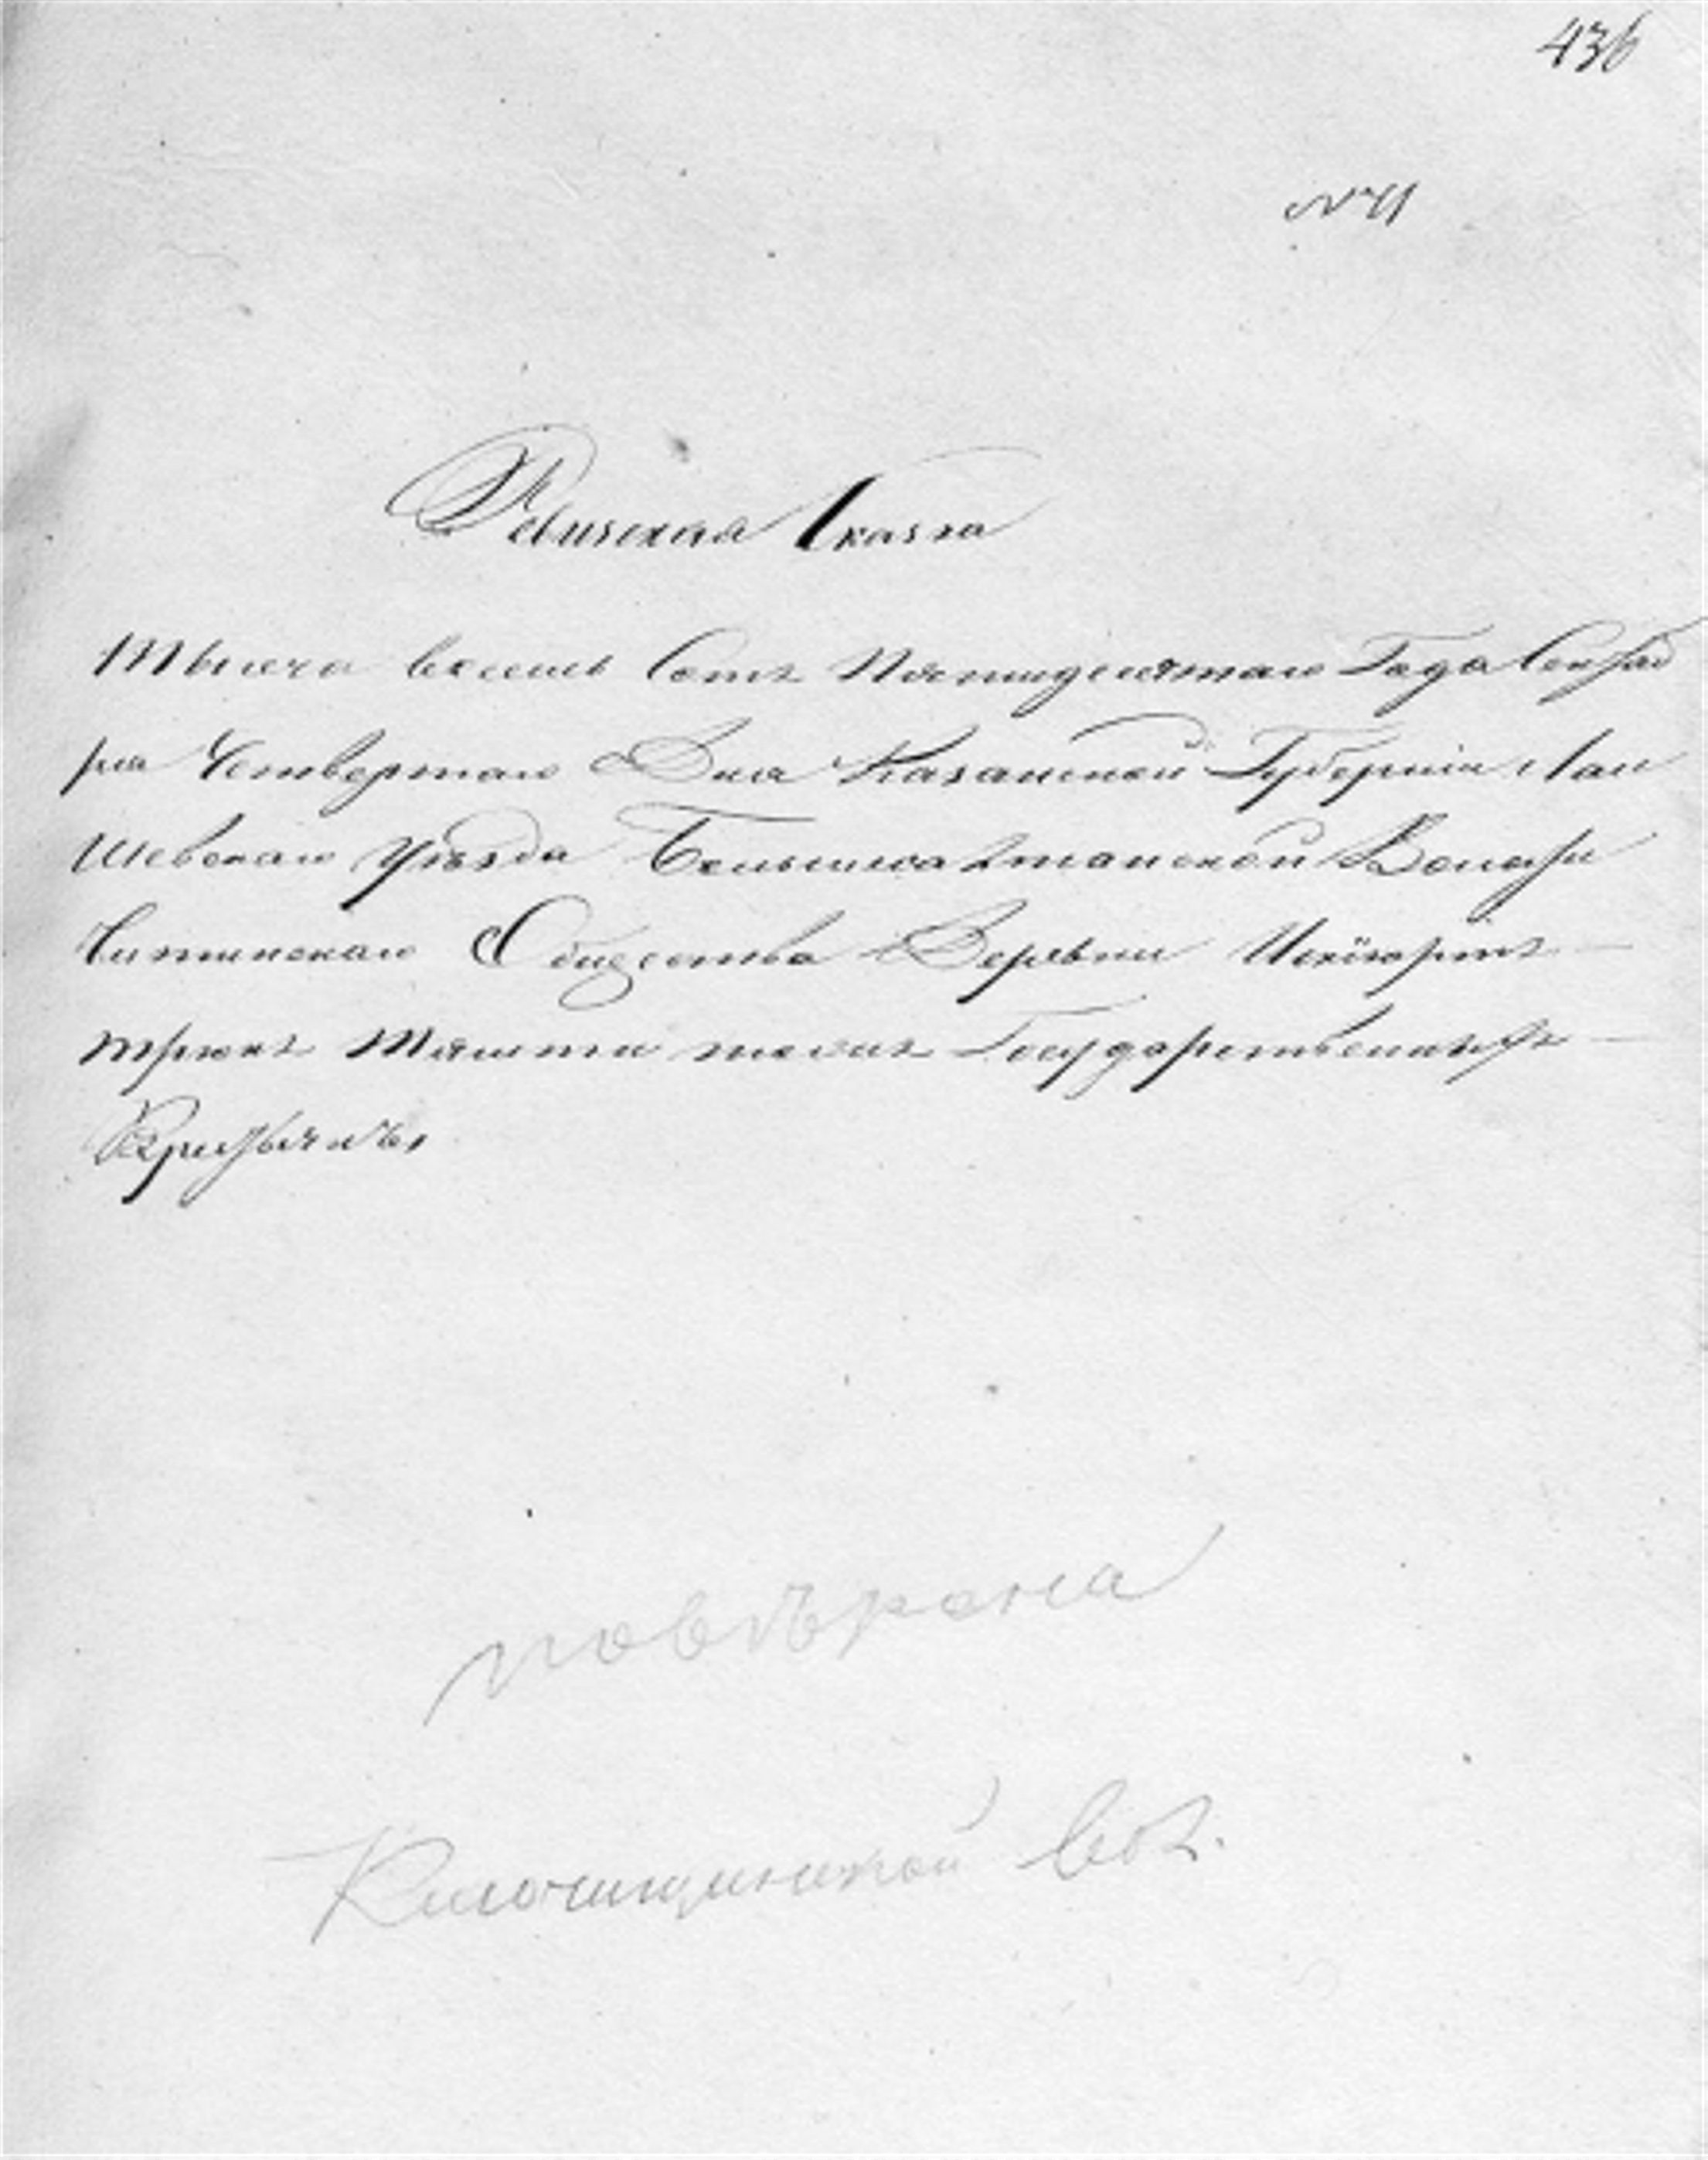 436
№ 11
Ревизская Сказка
Тысеча восемь Сотъ Пятидесятаго Года Сентяб
ря Четвертаго Дня Казанской Губерніи Лаи
шевскаго уѣзда Большеа Атанской Волости
Читинскаго Общества Деревни
трюкъ тожъ Государственныхъ
Крестьянъ,
повѣрена
Ключищинской вол.